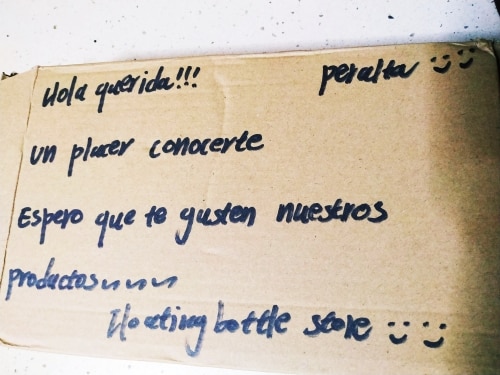 Hola querida!!! peralta
un placer conocerte
Espero que te gusten nuestros
productos~~~~
Floating bottle store